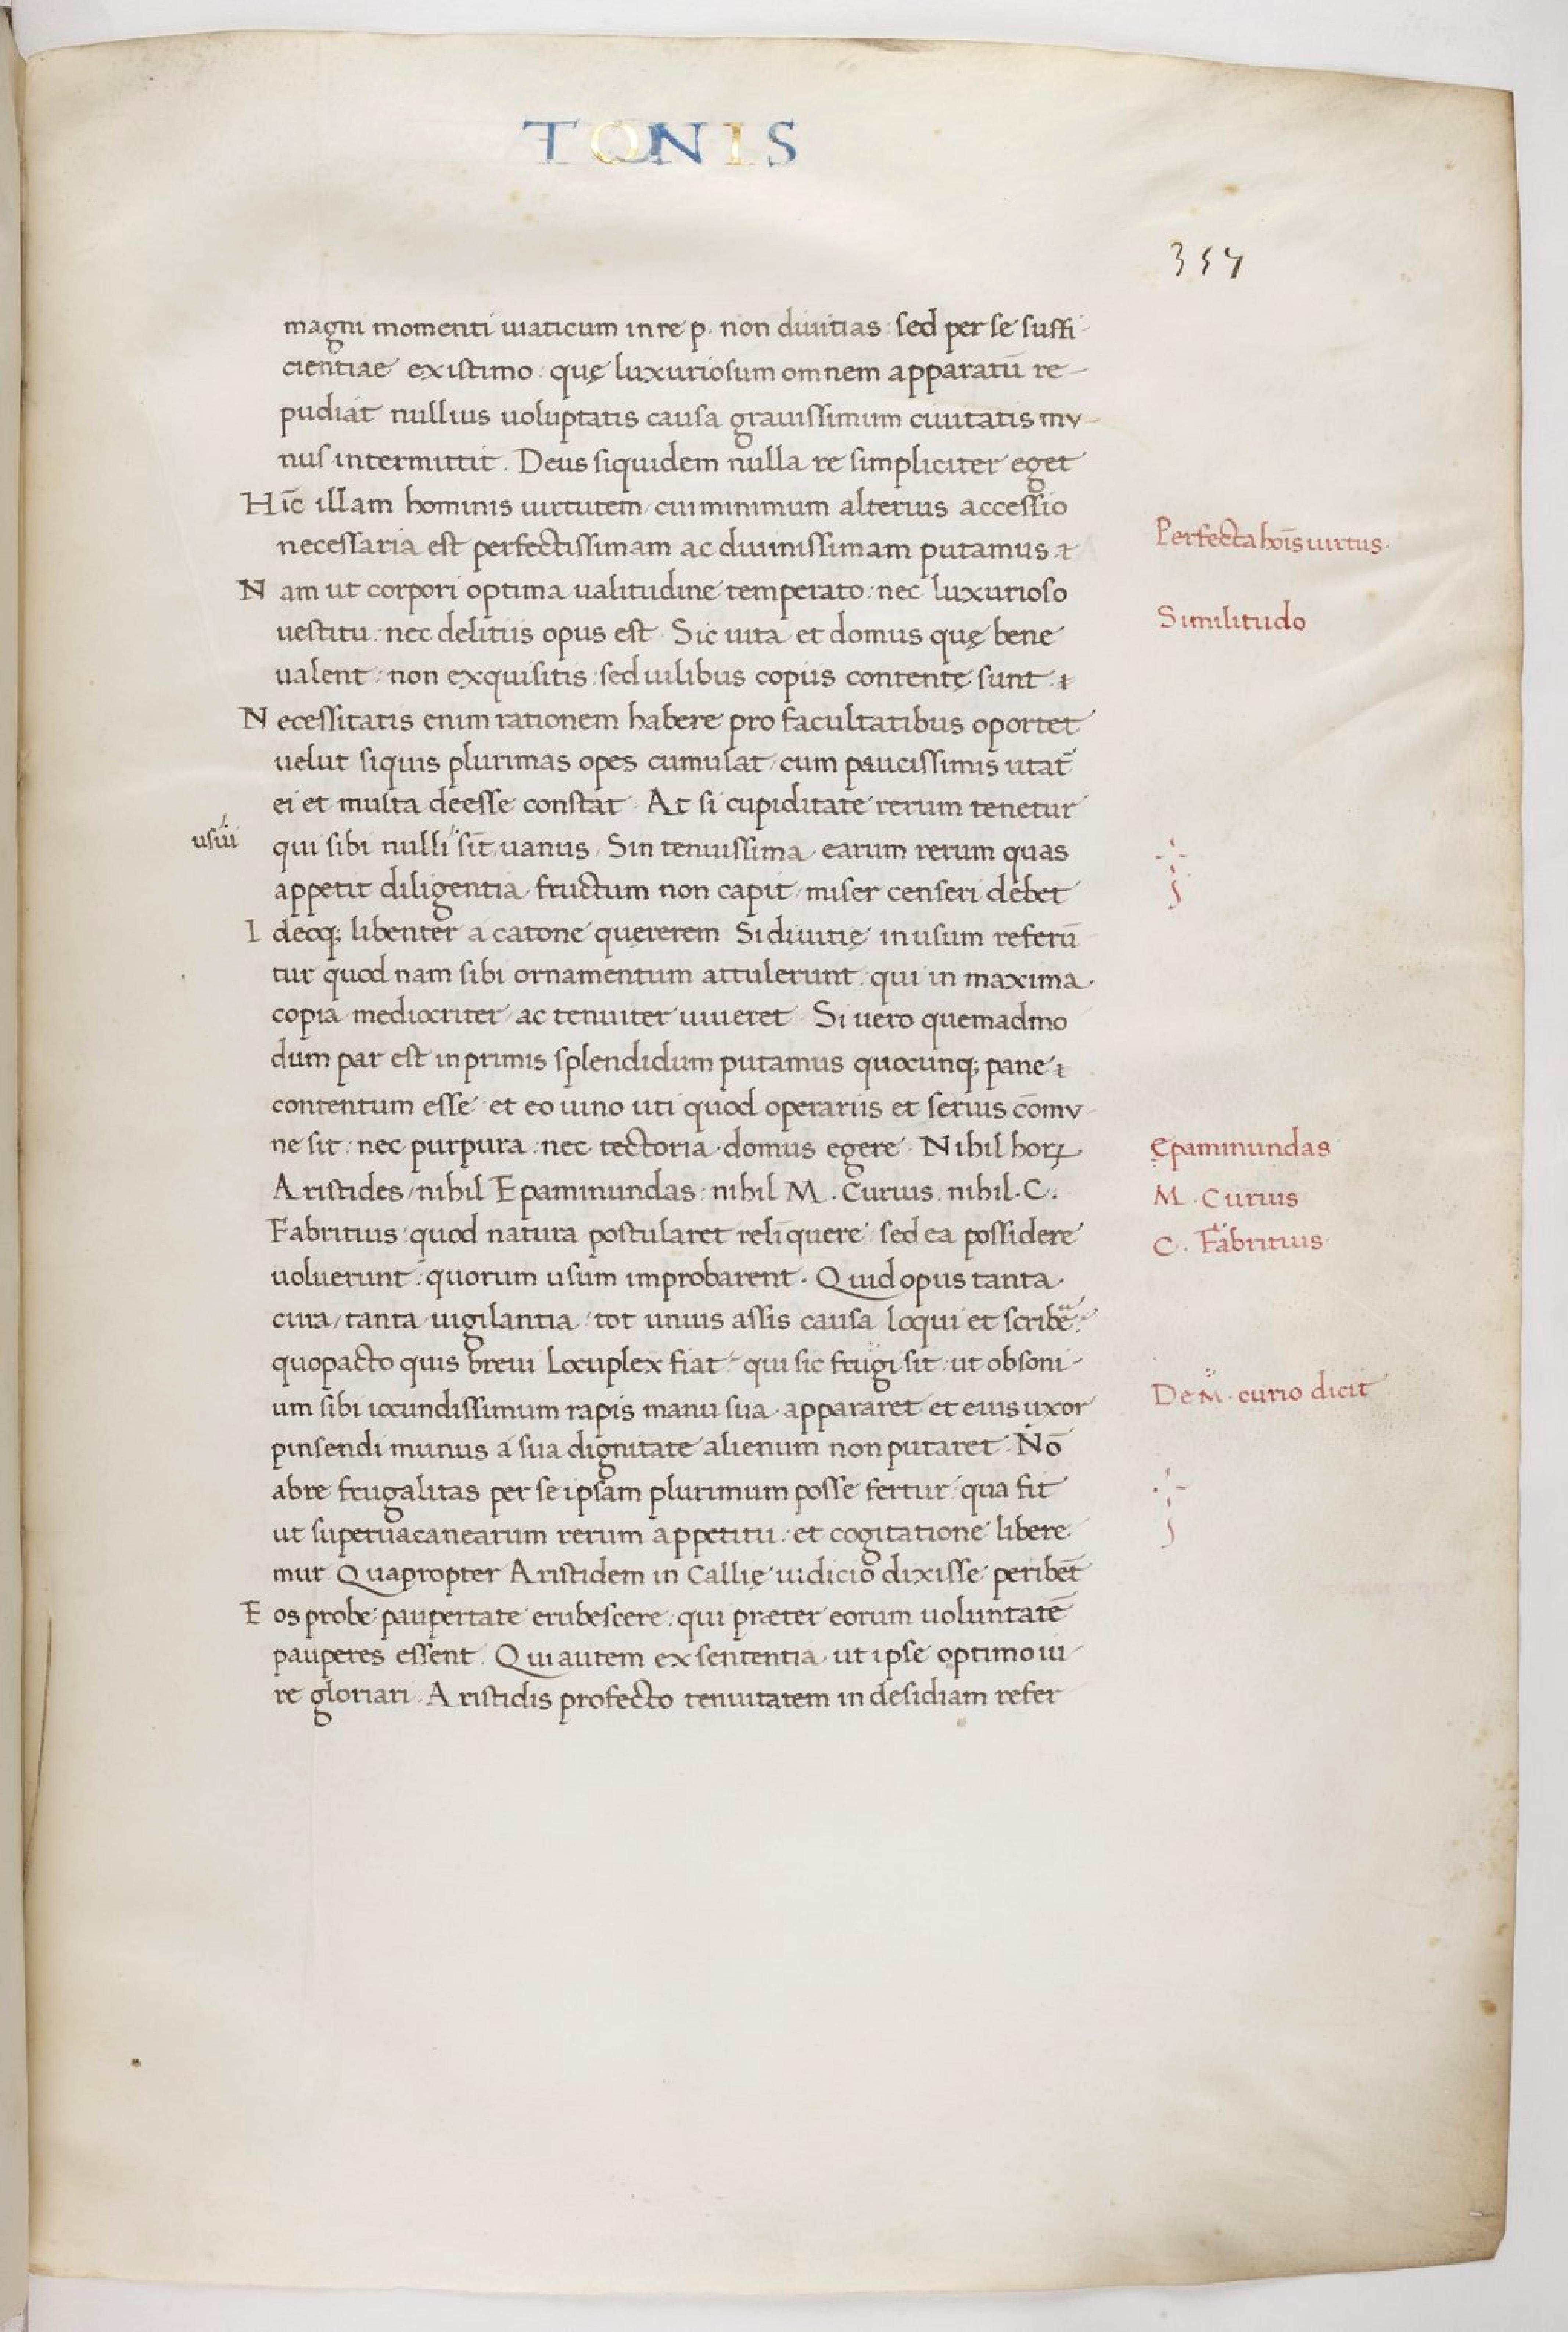 TONIS
357
magni momenti uiaticum in re p. non diuitias: sed per se suffi-
cientiae existimo: quę luxuriosum omnem apparatū re-
pudiat nullius uoluptatis causa grauissimum ciuitatis mu-
nus intermittit. Deus siquidem nulla re simpliciter eget
Hīc illam hominis uirtutem/ cui minimum alterius accessio
necessaria est perfectissimam ac diuinissimam putamus
Perfecta hoīs uirtus.
Nam ut corpori optima ualitudine temperato: nec luxurioso
uestitu: nec delitiis opus est. Sic uita et domus quę bene
Similitudo
ualent: non exquisitis: sed uilibus copiis contentę sunt.
Necessitatis enim rationem habere pro facultatibus oportet
uelut siquis plurimas opes cumulat/ cum paucissimis utat̄
ei et multa deesse constat. At si cupiditate rerum tenetur
usui
qui sibi nulli sīt uanus/ Sin tenuissima earum rerum quas
appetit diligentia fructum non capit/ miser censeri debet
Ideoq; libenter a catone quęrerem Si diuitię in usum referū
tur quod nam sibi ornamentum attulerunt: qui in maxima
copia mediocriter/ ac tenuiter uiueret. Si uero quemadmo
dum par est inprimis splendidum putamus quocunq; pane
contentum esse: et eo uino uti quod operariis et seruis cōmu-
ne sit: nec purpura: nec tectoria domus egere. Nihil horꝝ
Epaminundas
Aristides/ nihil Epaminundas: nihil M. Curius: nihil. C.
M. Curius
Fabritius: quod natura postularet relīquere: sed ea possidere
C. Fabritius.
uoluerunt: quorum usum improbarent. Quid opus tanta
cura/ tanta uigilantia/ tot unius assis causa loqui et scribē
quopacto quis breui locuplex fiat: qui sic frugi sit: ut obsoni-
um sibi iocundissimum rapis manu sua appararet et eius uxor
De M. curio dicit
pinsendi munus a sua dignitate alienum non putaret. Nō
abre frugalitas per se ipsam plurimum posse fertur: qua fit
ut superuacanearum rerum appetitu: et cogitatione libere
mur Quapropter Aristidem in Callię iudicio dixisse peribēt
Eos probe paupertate erubescere: qui præter eorum uoluntatē
pauperes essent. Qui autem ex sententia ut ipse optimo iu-
re gloriari. Aristidis profecto tenuitatem in desidiam refer